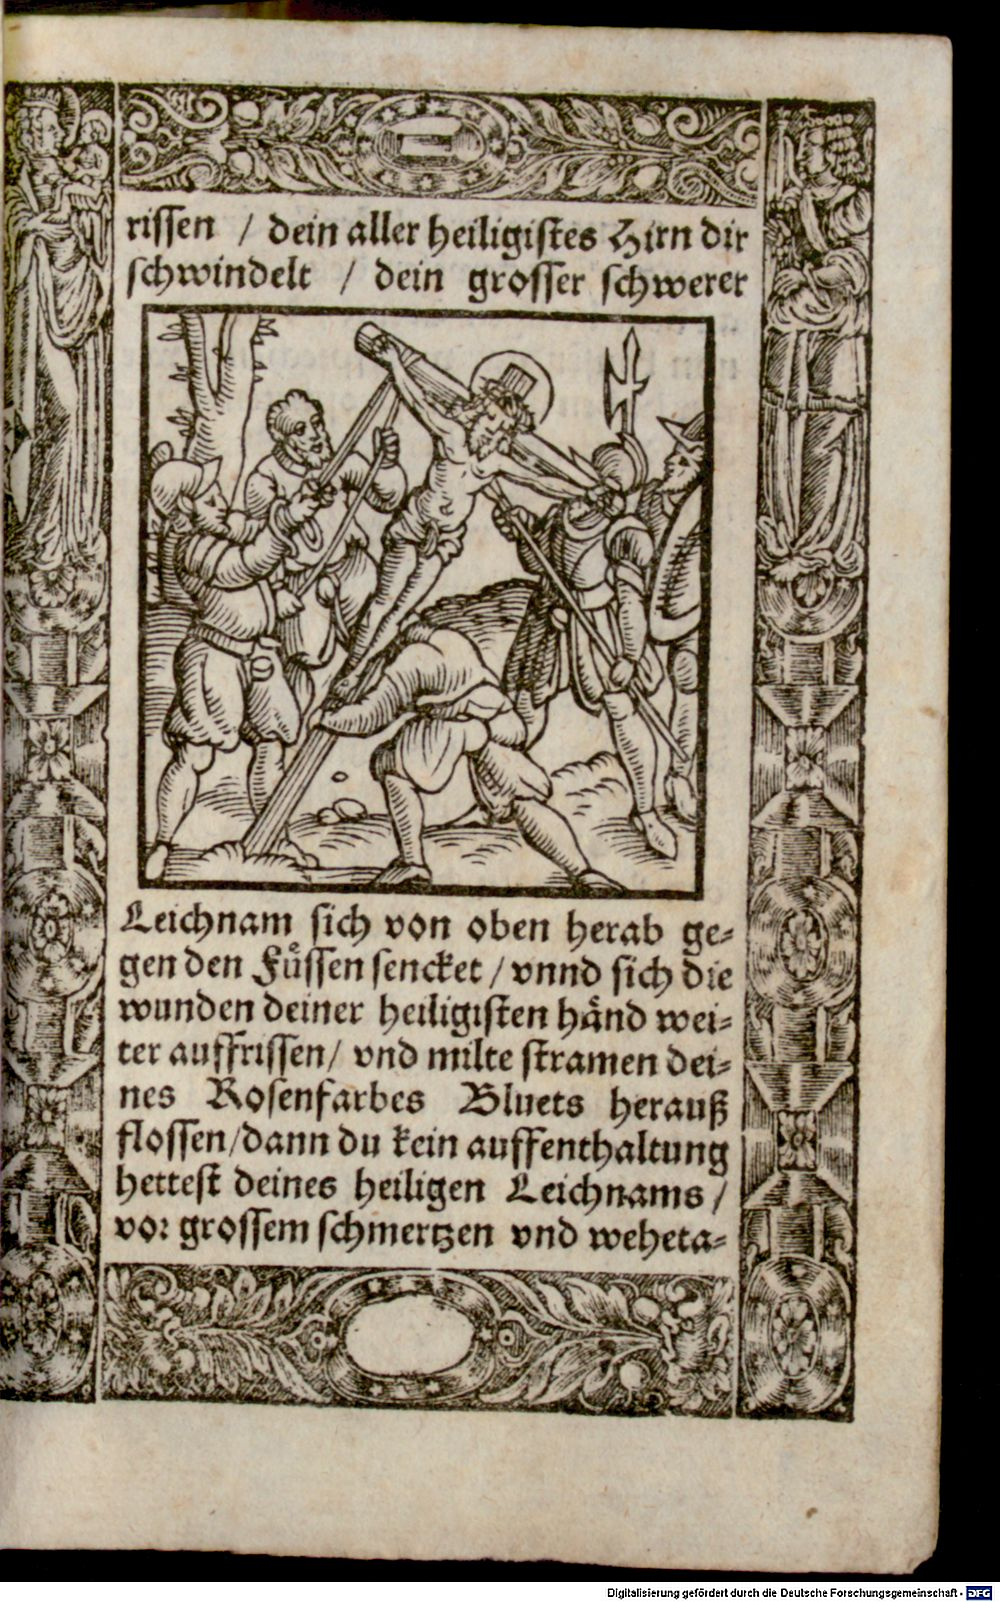 rissen / dein aller heiligistes Hirn dir
schwindelt / dein grosser schwerer
Leichnam sich von oben herab ge⸗
gen den Fuͤssen sencket / vnnd sich die
wunden deiner heiligisten haͤnd wei⸗
ter auffrissen / vnd milte stramen dei⸗
nes Rosenfarbes Bluets herauß
flossen / dann du kein auffenthaltung
hettest deines heiligen Leichnams /
vor grossem schmertzen vnd weheta⸗
Digitalisierung gefördert durch die Deutsche Forschungsgemeinschaft - DFG